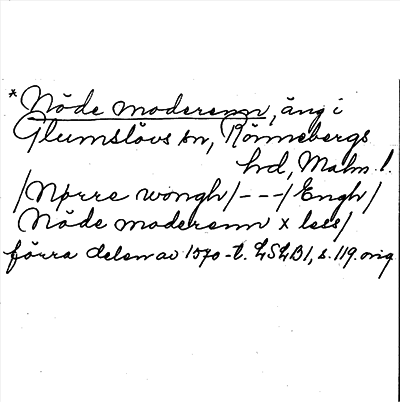 *Nöde moderenn, äng i
Glumslövs sn, Rönnebergs
hd, Malm. l.
/Nørre wongh/---/Engh/
Nöde moderenn x less/
förra delen av 1570-t. LSLB1, s. 119. orig